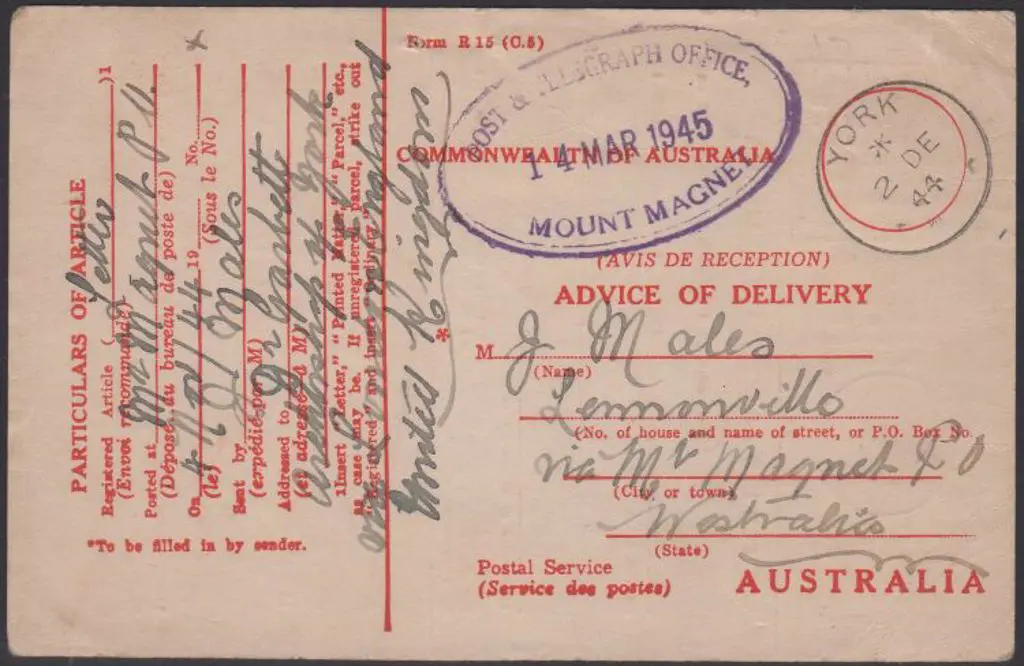 Form R 15 (C.5)
POST & TELEGRAPH OFFICE,
14 MAR 1945
MOUNT MAGNET
YORK
2 DE
44
COMMONWEALTH OF AUSTRALIA
(AVIS DE RECEPTION)
ADVICE OF DELIVERY
M J Males
(Name)
Lennonville
(No. of house and name of street, or P.O. Box No.
via Mt Magnet P O
(City or town)
Westralia
(State)
Postal Service
(Service des postes)
AUSTRALIA
PARTICULARS OF ARTICLE
Registered Article ( Letter )1
(Envoi recommandé)
Posted at Mt Magnet P.O.
(Déposé au bureau de poste de)
On 4 / 44 19 No.
(le) (Sous le No.)
Sent by Males
(expédié par M)
Addressed to Dr Garbett
(et adressé à M)
Archbishop of York
1Insert "Letter," "Printed Matter," "Parcel," etc.,
as case may be. If unregistered parcel, strike out
"Registered" and insert "Ordinary."
England
United Kingdom
*
*To be filled in by sender.